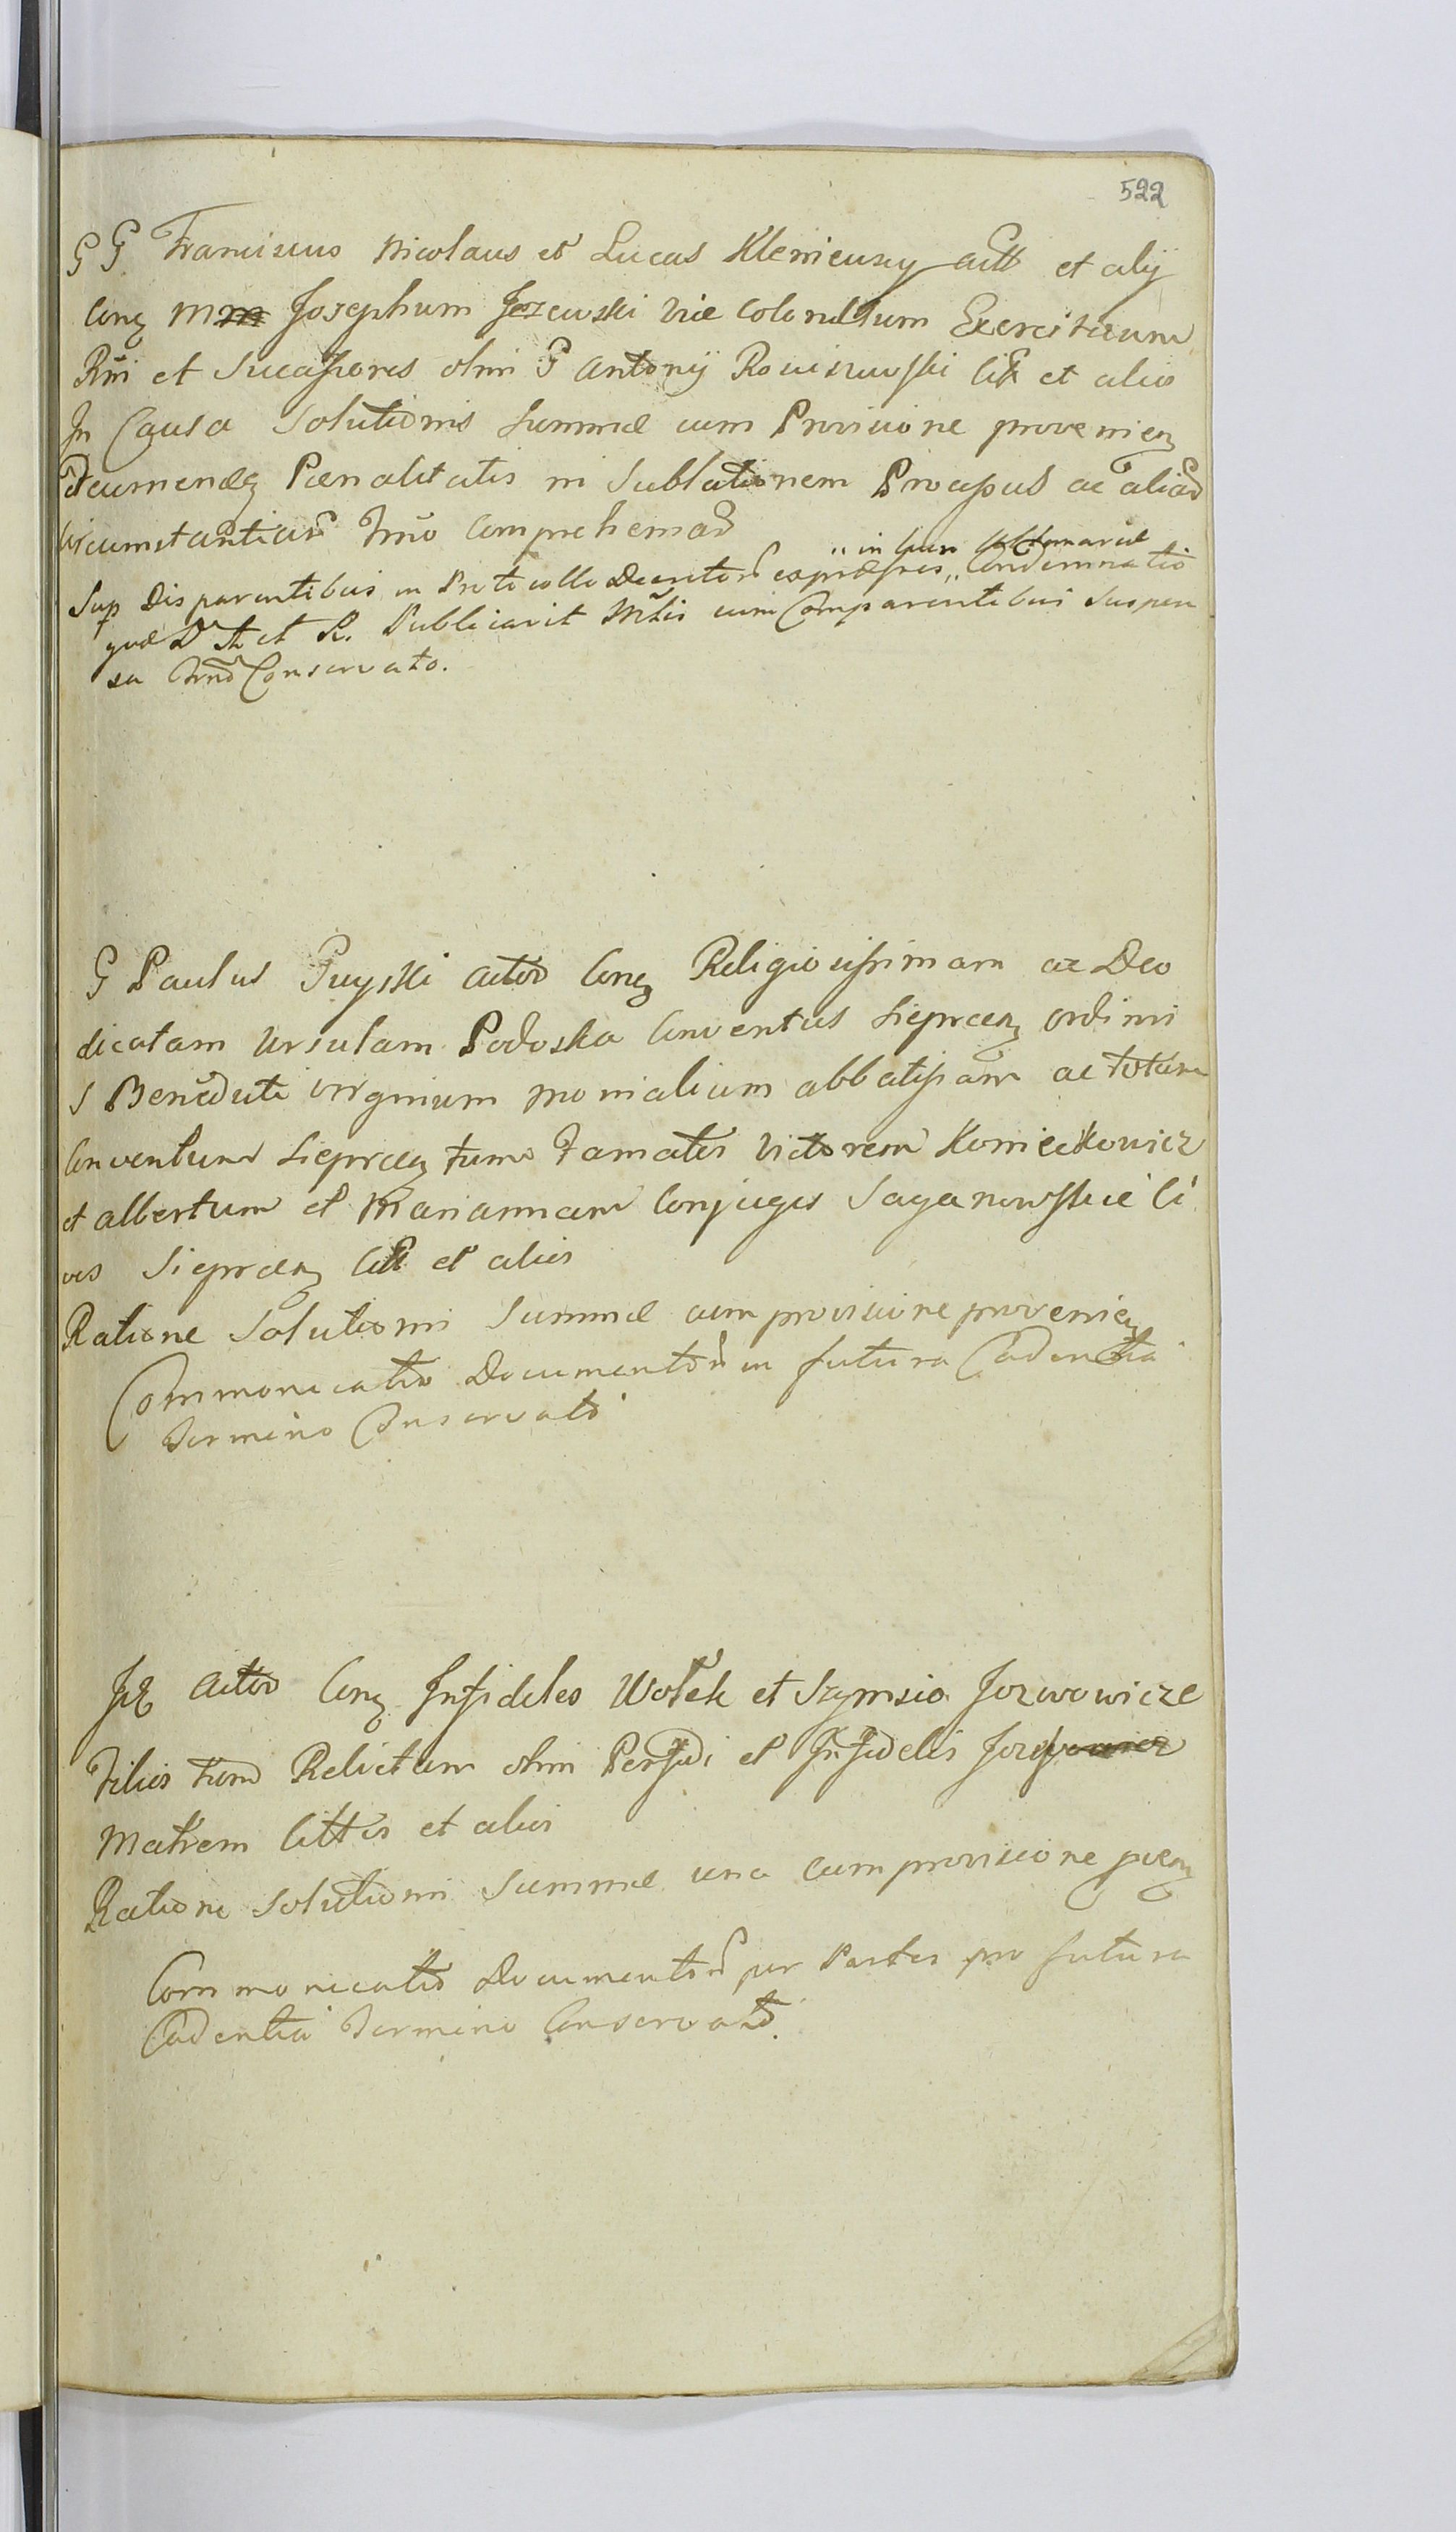 522
G G Franciscus Nicolaus et Lucas Kleniewscy actt et alij
Conq M Josephum Jezewski vice Colonellum Exercituum
Rni et Successores olim G Antonij Rociszewski citt et alios
In Causa Solutionis Summæ cum Provisione provenienq
decumendæq Pænalitatis in Sublationem Processus ac aliarū
circumstantiarū Trnō Comprehensarū
Sup Disparentibus in Protocollo Decretorū expræssis „ Condemnatio
„ in Lucri
quæ D A et R. Publicavit Mltis cum Comparentibus Suspen
sa Trnō Conservato.
G Paulus Puyski actor Conq Religiosissimam ac Deo
dicatam Ursulam Podoska Conventus Sieprcenq ordinis
S Benedicti Virginum Monialium abbatissam ac totum
Conventum Sieprcenq tum Famatos Victorem Konieckowicz
et albertum et Mariannam Conjuges Saganowskie Ci
ves Sieprcenq Citt et alios
Ratione Solutionis Summæ cum provisione provenienq
Commonicatio Documentorū in futura Cadentia
Termino Conservato
Actor Conq Infideles Wolek et Szymsio Jozwowicze
Filios tum Relictam olim Perfidi et Infidelis
Matrem Cittos et alios
Ratione Solutionis Summæ una cum provisione pvenq
Commonicatio Documentorū per Partes pro futura
Cadentia Termino Conservato.